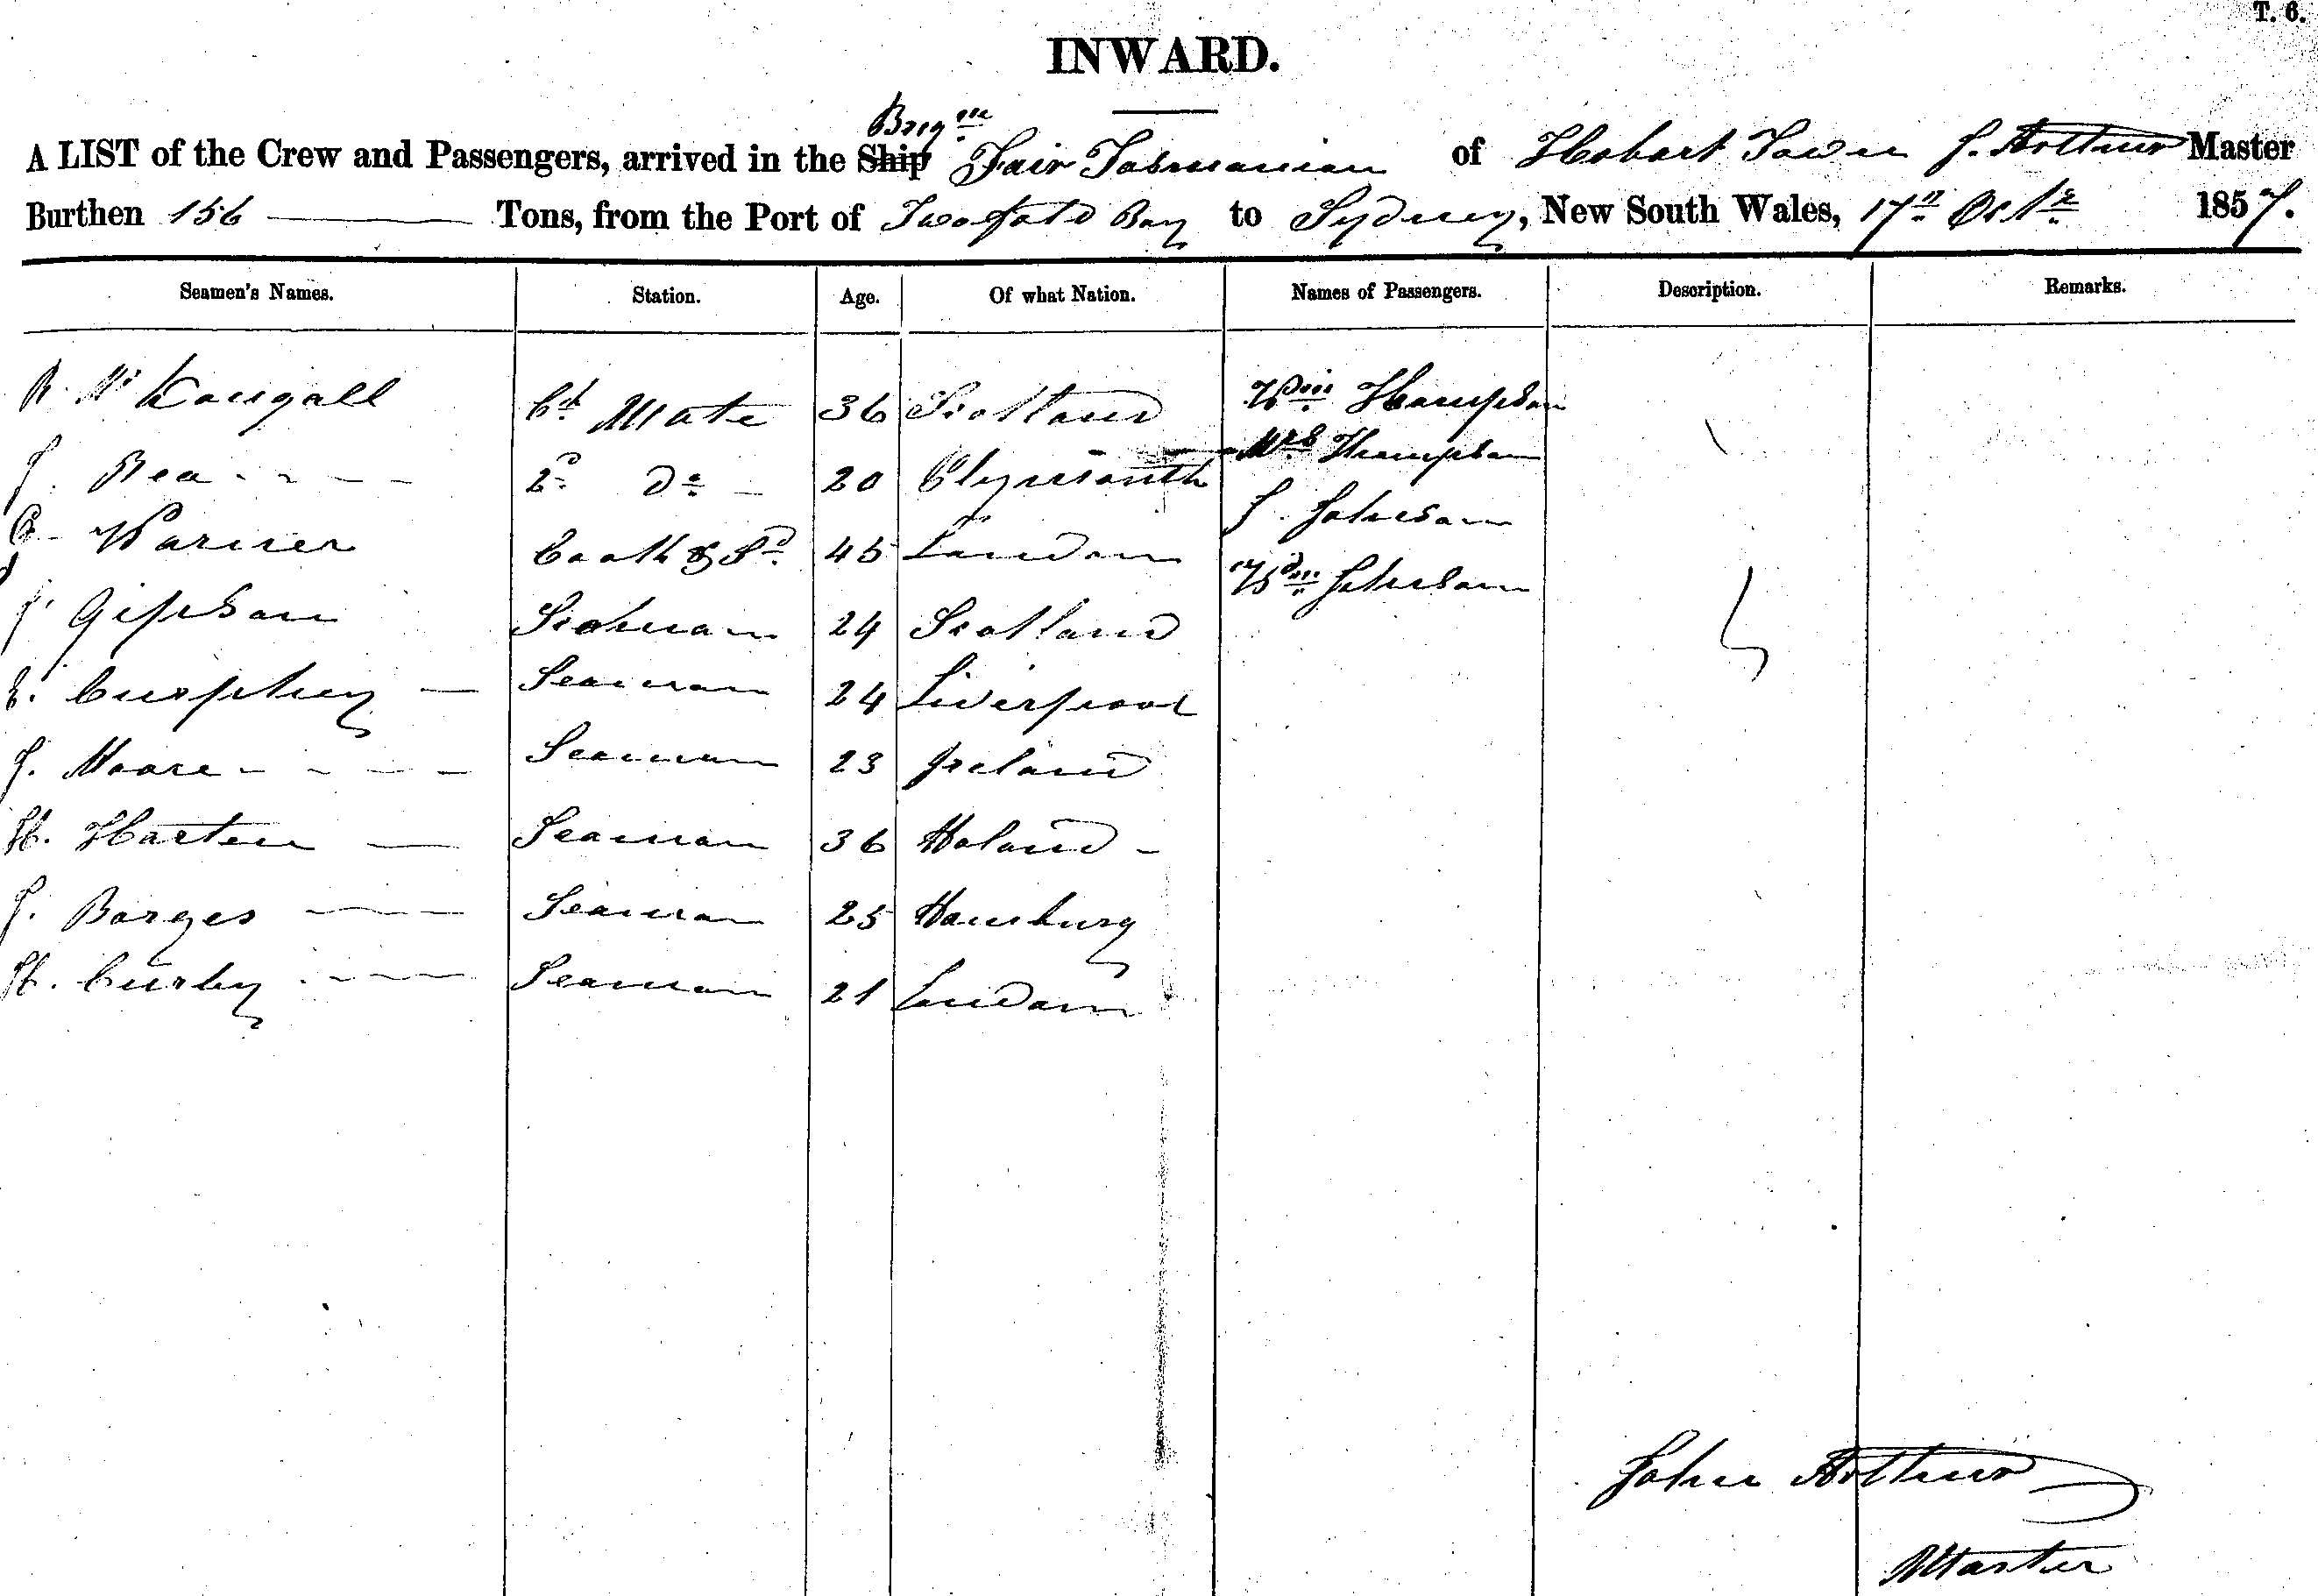 T. 6.
INWARD.
Brigne
A LIST of the Crew and Passengers, arrived in the Ship Fair Tasmanian of Hobart Town J. Arthur Master
Burthen 156 Tons, from the Port of Twofold Bay to Sydney, New South Wales, 17th Octr 1857.
Seamen's Names. Station. Age. Of what Nation. Names of Passengers. Description. Remarks.
Mate 36 Scotland Wm Thompson
J. Rea 2d Do 20 Plymouth Mrs Thompson
Warner Cook & Sd 45 London J. Johnson
J. Gipson Seaman 24 Scotland Wm Johnson
Seaman 24 Liverpool
J. Moore Seaman 23 Ireland
H. Harten Seaman 36 Holand
J. Borges Seaman 25 Hamburg
H. Curby Seaman 21 London
John Arthur
Master